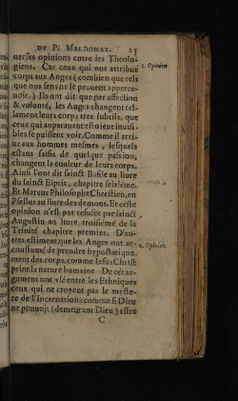 DV P. MALDONAT. 25
uerses opinions entre les Theolo-
giens. Car ceux qui ont attribué
corps aux Anges (combien que tels
que nos sens ne le peuuent apperce-
uoir.) Ils ont dit que par affection
& volonté, les Anges changent tel-
lement leurs corps tres subtils, que
ceux qui auparauant estoient inuisi-
bles se puissent voir. Comme il arri-
ue aux hommes mesmes, lesquels
estans saisis de quelque passion,
changent la couleur de leurs corps.
Ainsi l'ont dit sainct Basile au liure
du sainct Esprit, chapitre seiziéme.
Et Marcus Philosophe Chrestien, en
Psellus au liure des demons. Et ceste
opinion n'est pas refusée par sainct
Augustin au liure troisiéme de la
Trinité chapitre premier. D'au-
tres estiment que les Anges ont ac-
coustumé de prendre hypostatique-
ment des corps, comme Iesus Christ
print la nature humaine. De cét ar-
gument ont vsé entre les Ethniques
ceux qui ne croyent pas le myste-
re de l'Incarnation: comme si Dieu
ne pouuoit (demeurant Dieu) estre
C
1. Opinion
2. Opinion